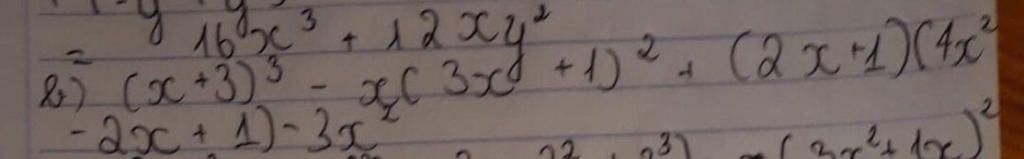 = 16x³ + 12xy²
b) (x+3)³ - x(3x+1)² + (2x+1)(4x²
-2x+1)-3x²
(3x²+1x)²